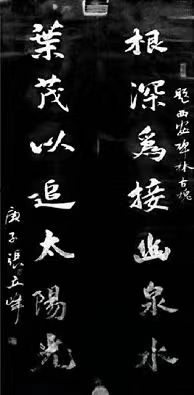 題西安碑林古槐
根深為接幽泉水
葉茂以追太陽光
庚子張峰